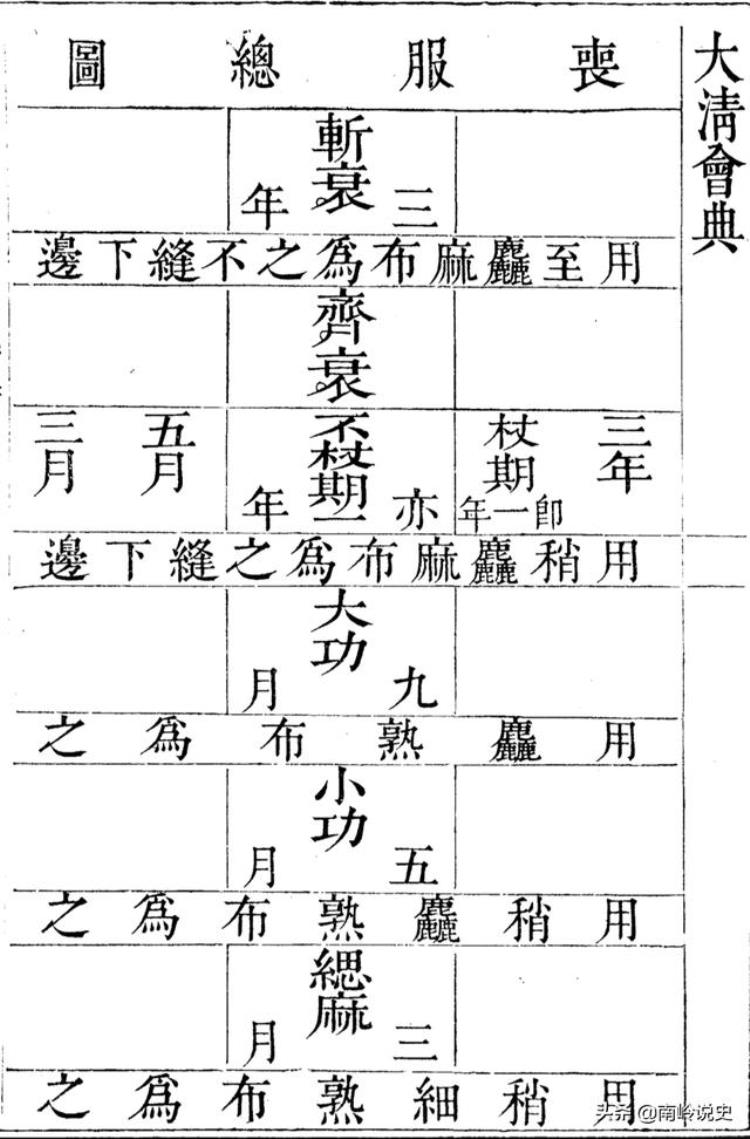 大淸會典
喪服總圖
斬衰
三年
用至麤麻布為之不縫下邊
齊衰
三年
杖期
即一年
不杖期
亦一年
五月
三月
用稍麤麻布為之縫下邊
大功
九月
用麤熟布為之
小功
五月
用稍麤熟布為之
緦麻
三月
用稍細熟布為之
头条 @南岭说史